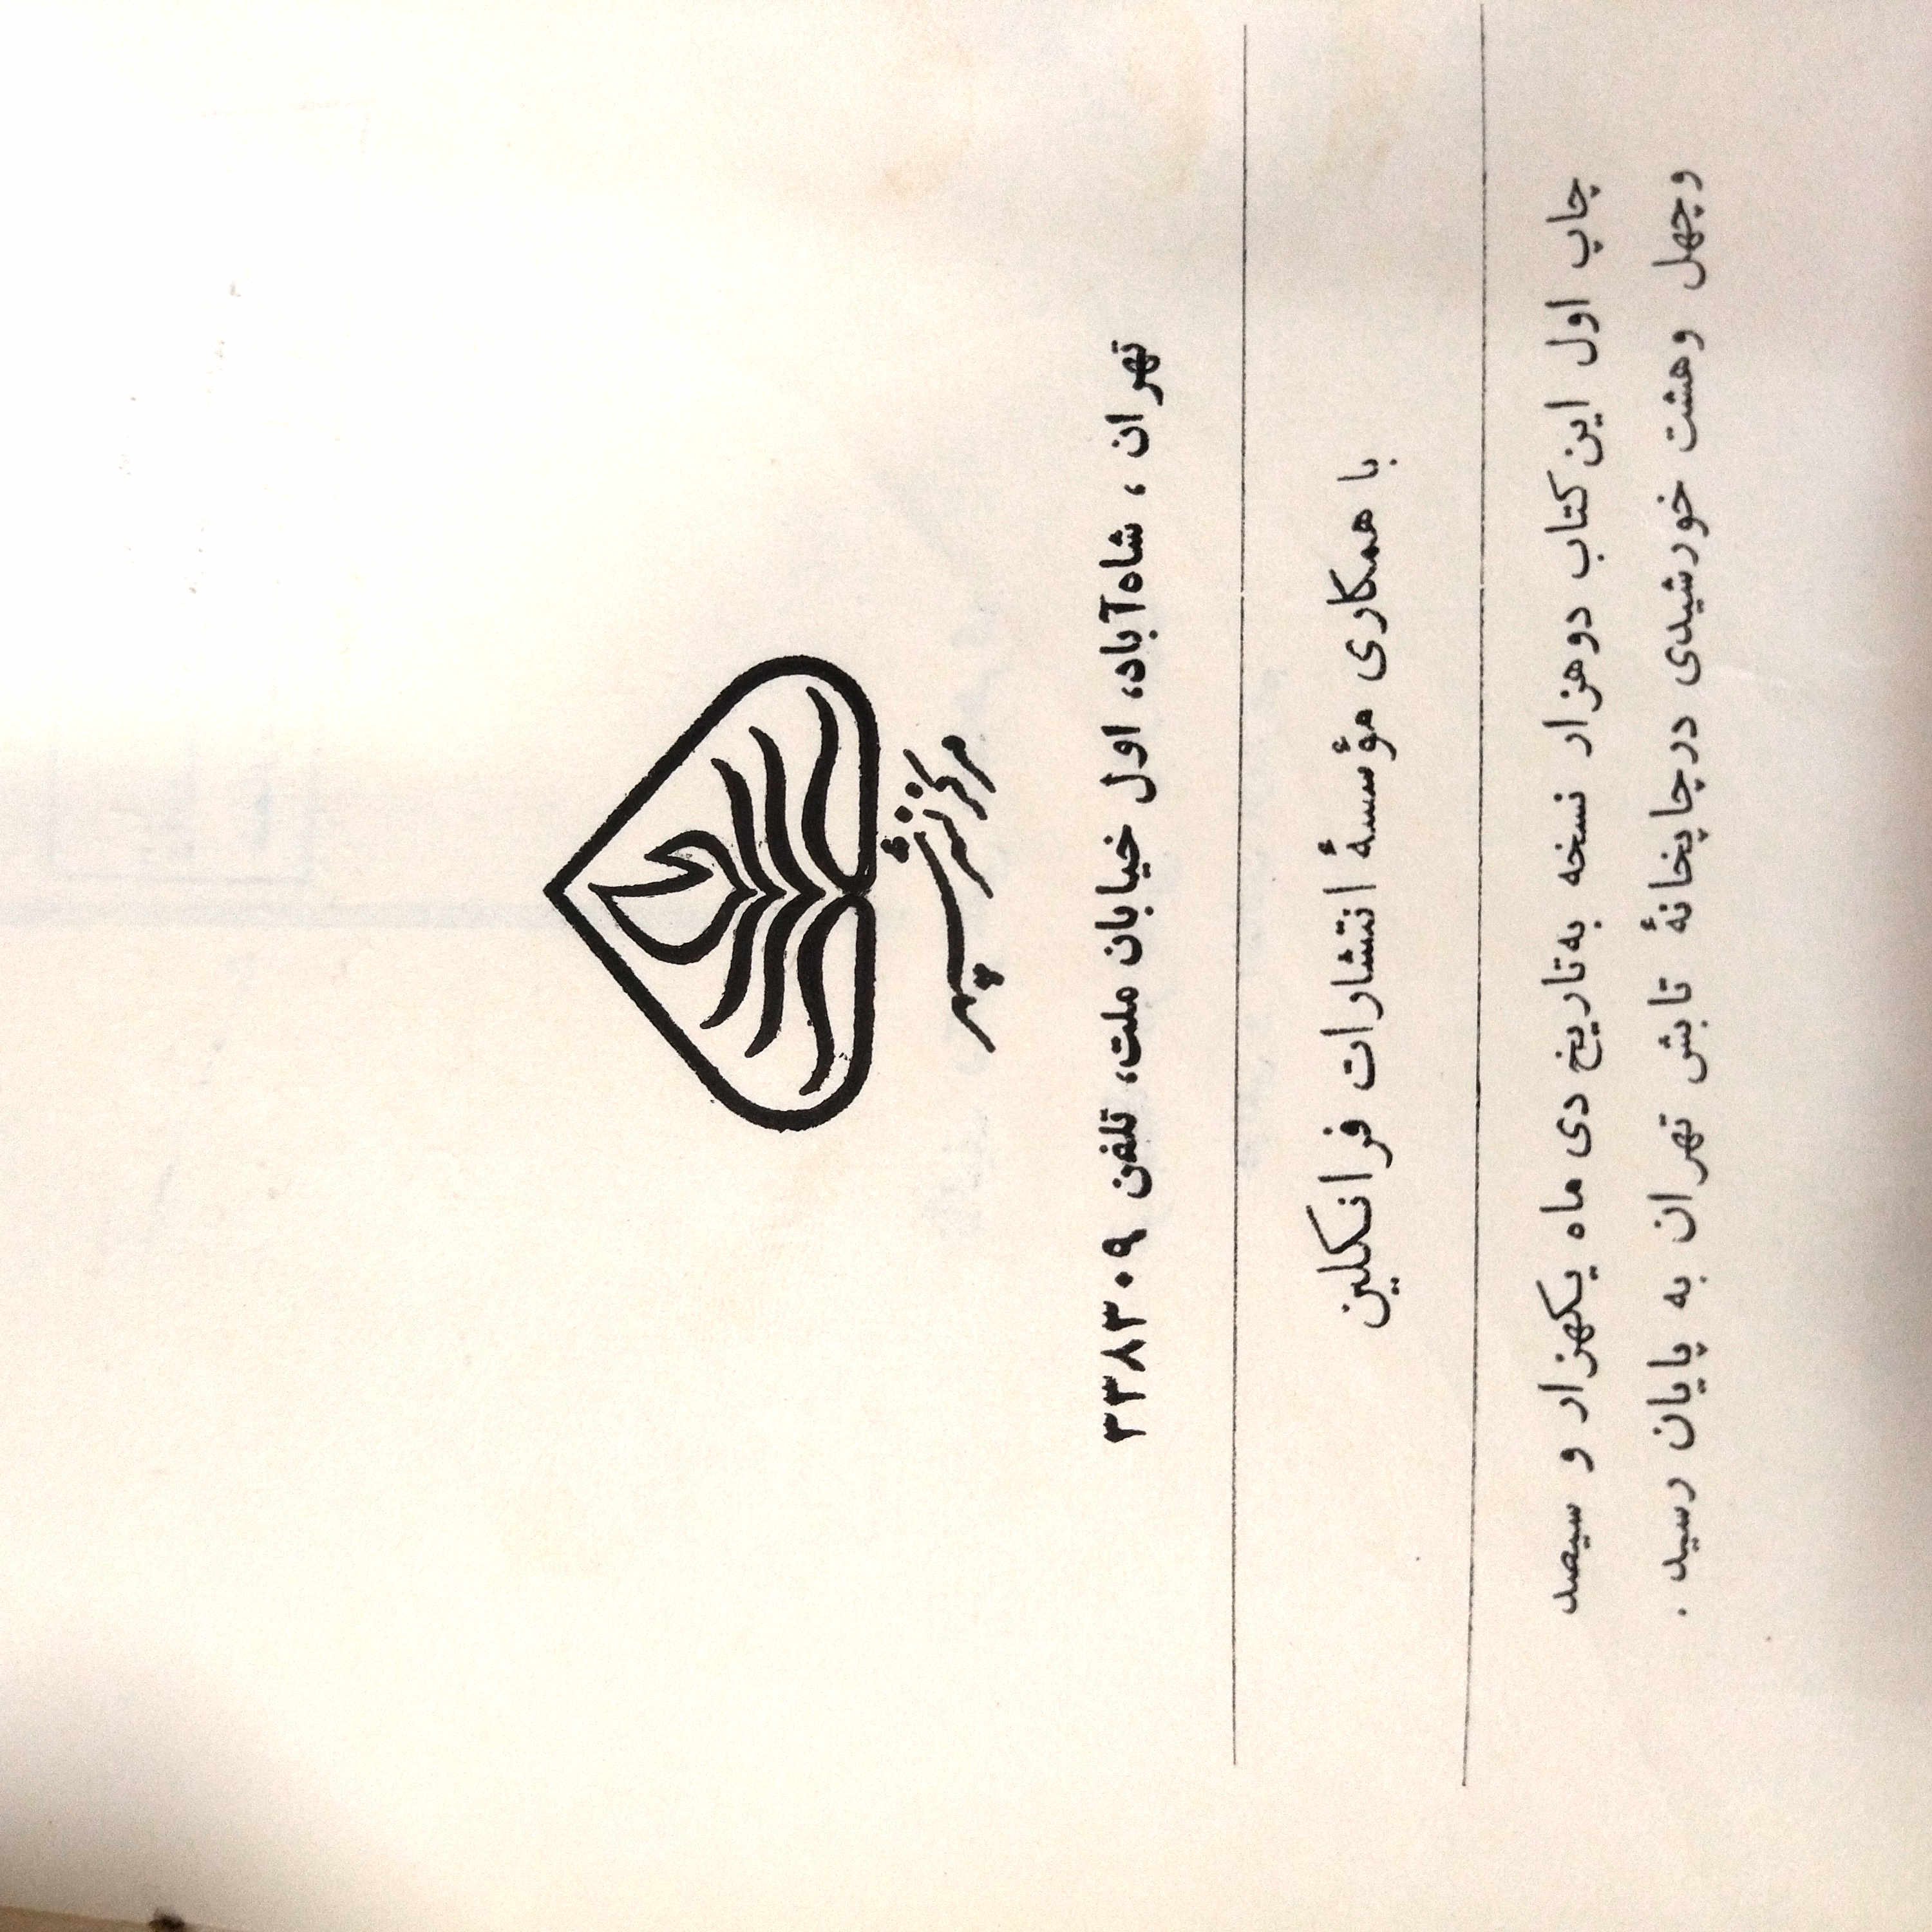 مرکز نشر
سپهر
تهران ، شاه‌آباد، اول خیابان ملت، تلفن ۳۳۸۳۰۹
با همکاری مؤسسهٔ انتشارات فرانکلین
چاپ اول این کتاب دوهزار نسخه به تاریخ دی ماه یکهزار و سیصد
وچهل وهشت خورشیدی درچاپخانهٔ تابش تهران به پایان رسید .